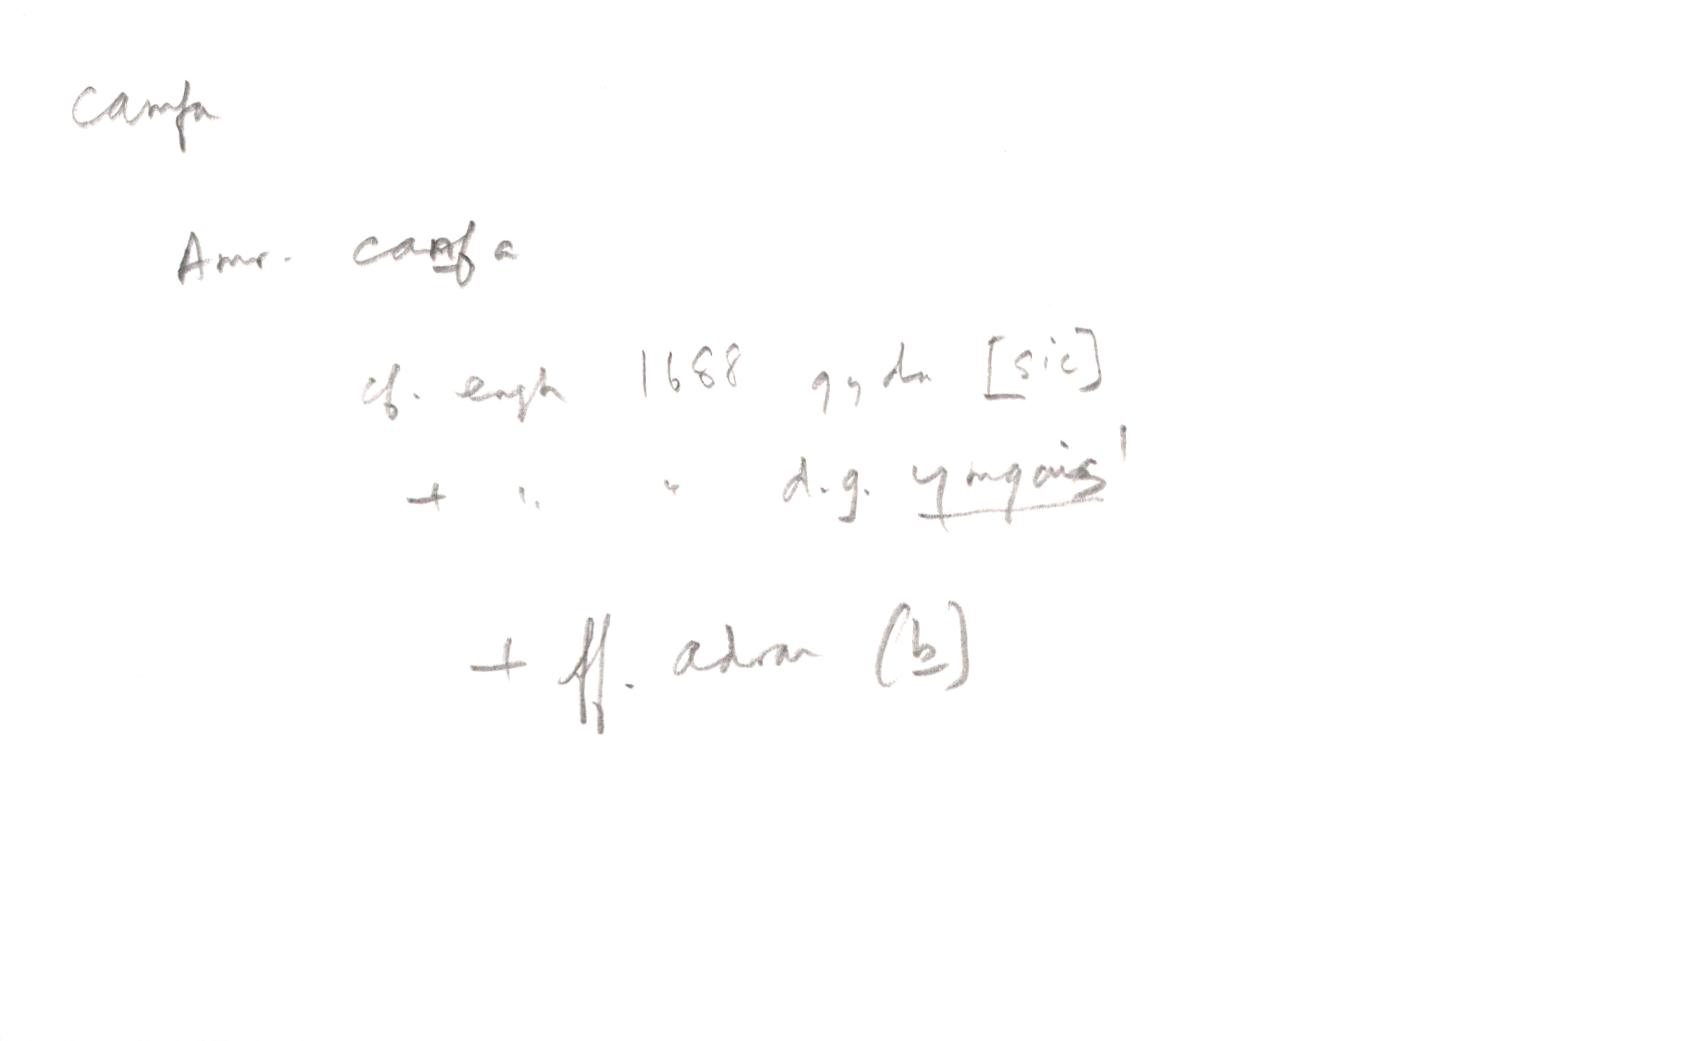 camfa
Amr. canfa
cf. engh 1688 gyda [sic]
+ " " d.g. ymgais¹
+ ff. adran (b)